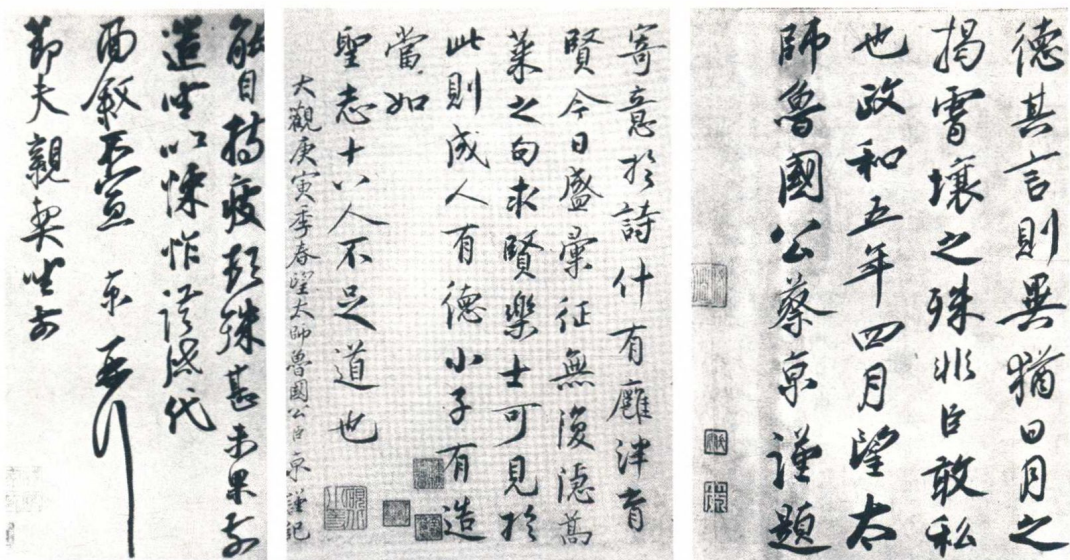 德其言則異猶日月之
揭霄壤之殊非臣敢私
也政和五年四月望太
師魯國公蔡京謹題
寄意於詩什有廱泮育
賢今日盛彙征無復隱蒿
萊之句求賢樂士可見於
此則成人有德小子有造
當如
聖志十八人不足道也
大觀庚寅季春望太師魯國公臣京謹記
能目持疲頓殊甚未果前
造坐以悚怍謹啟代
面敘不宣 京 再拜
節夫親契坐前